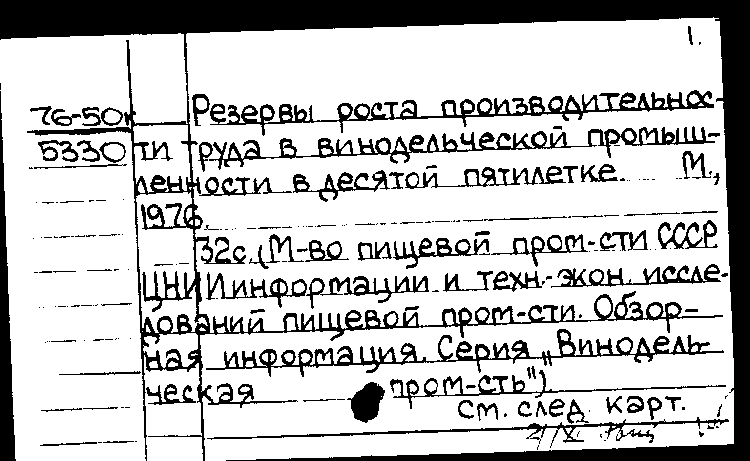 1.
76-50к Резервы роста производительнос-
5330 ти труда в винодельческой промыш-
ленности в десятой пятилетке. М.,
1976.
32с. (М-во пищевой пром-сти СССР.
ЦНИИинформации и техн.-экон. иссле-
дований пищевой пром-сти. Обзор-
ная информация. Серия „Винодель-
ческая пром-сть").
см. след. карт.
21/XI